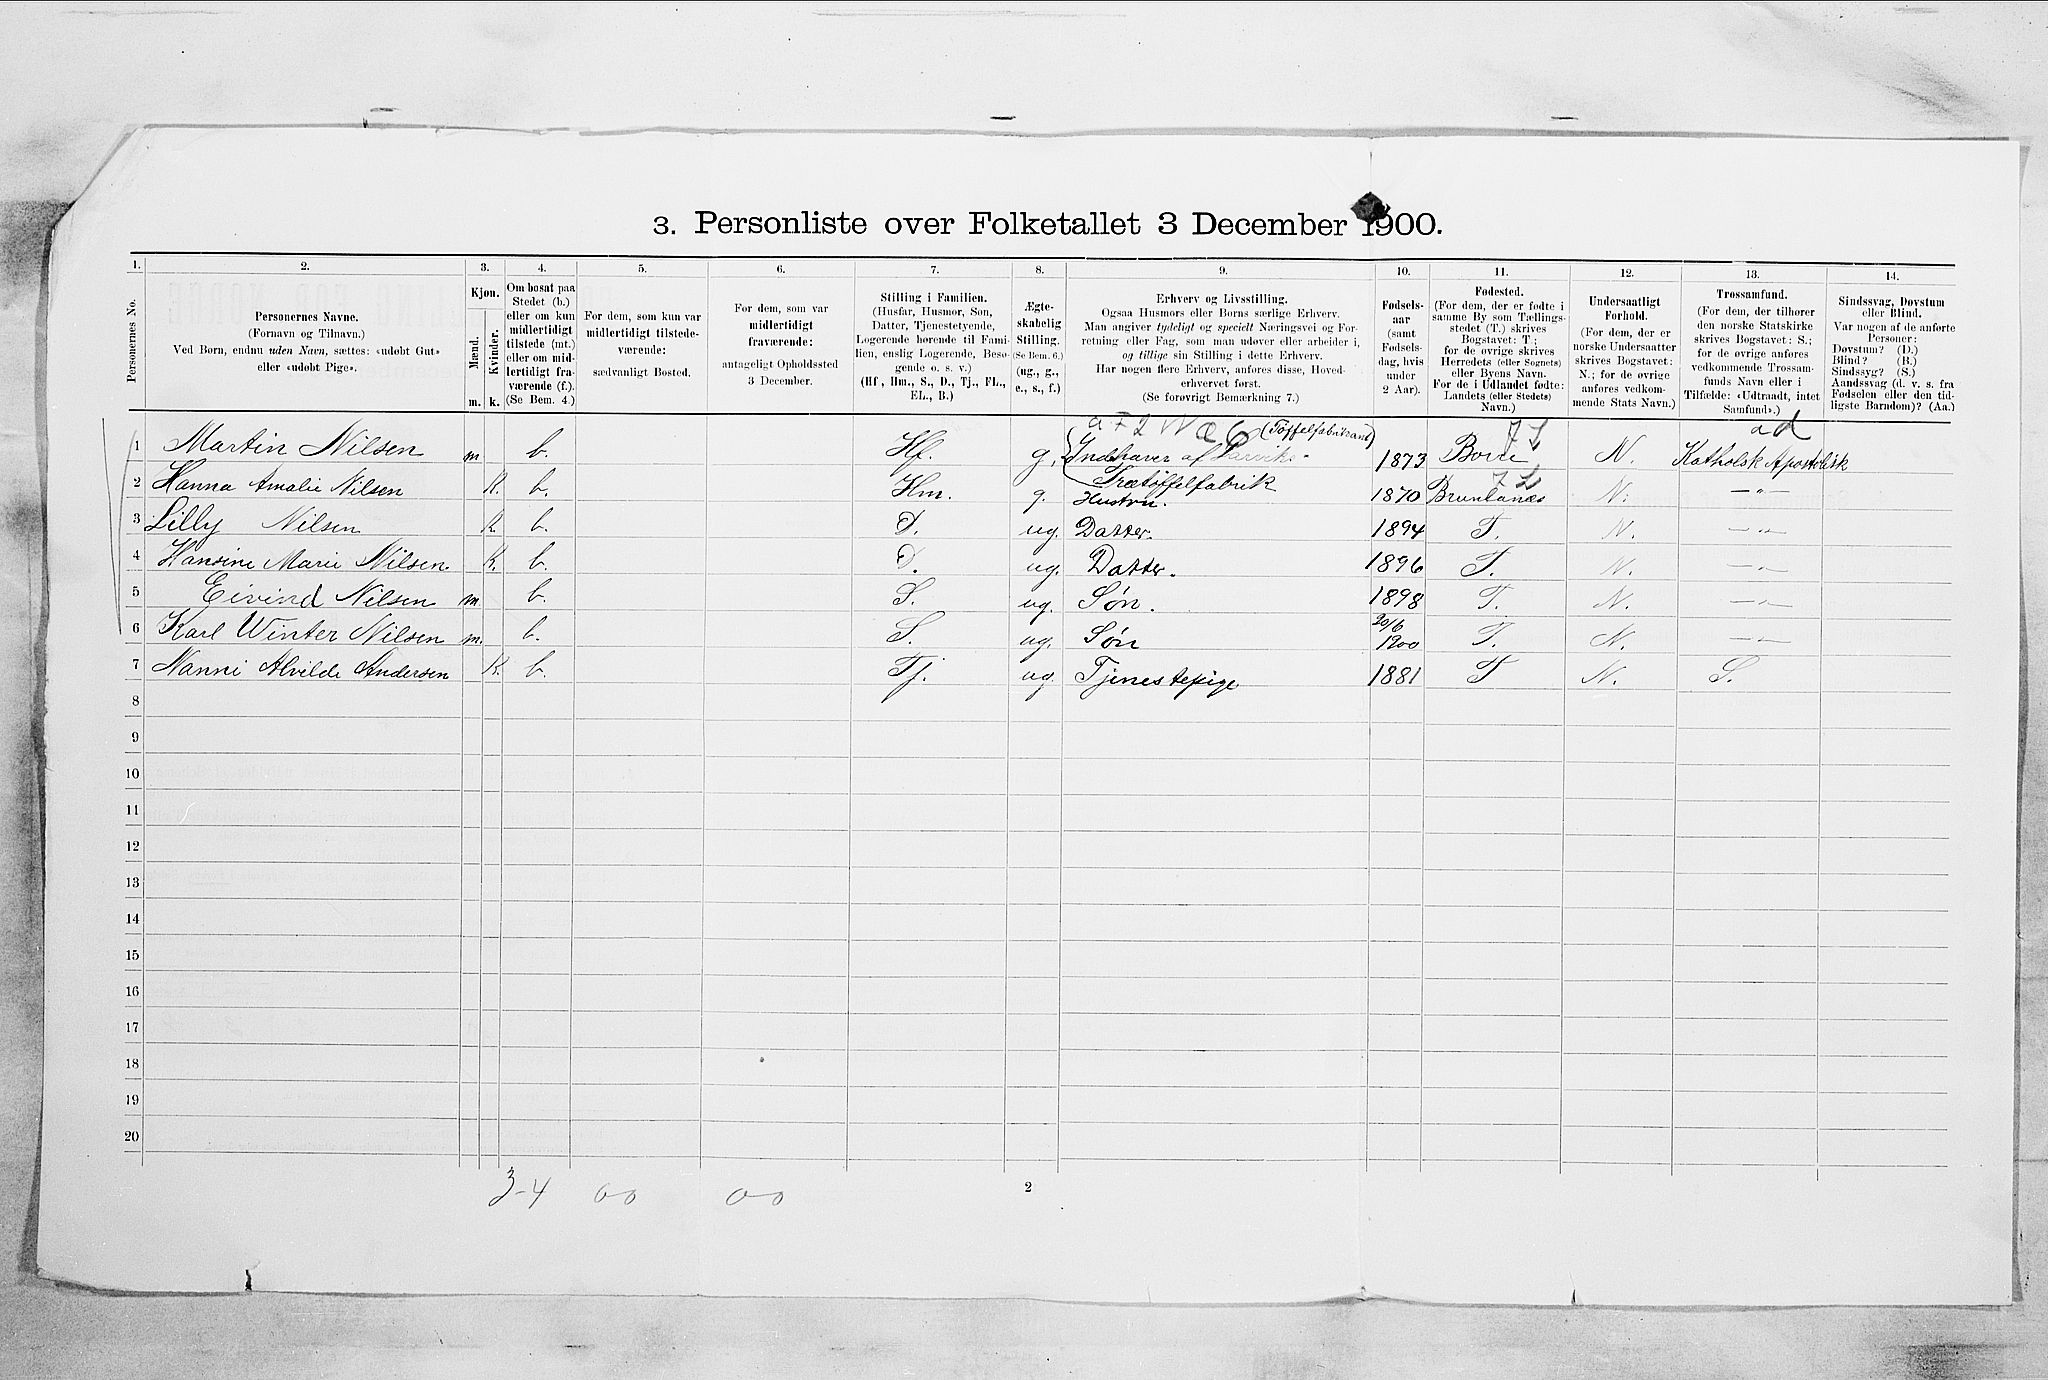 3. Personliste over Folketallet 3 December 1900.
1. 2. 3. 4. 5. 6. 7. 8. 9. 10. 11. 12. 13. 14.
Personernes No.
Personernes Navne.
(Fornavn og Tilnavn.)
Ved Børn, endnu uden Navn, sættes: «udøbt Gut»
eller «udøbt Pige».
Kjøn.
Mænd.
Kvinder.
m. k.
Om bosat paa
Stedet (b.)
eller om kun
midlertidigt
tilstede (mt.)
eller om mid-
lertidigt fra-
værende (f.).
(Se Bem. 4.)
For dem, som kun var
midlertidigt tilstede-
værende:
sædvanligt Bosted.
For dem, som var
midlertidigt
fraværende:
antageligt Opholdssted
3 December.
Stilling i Familien.
(Husfar, Husmor, Søn,
Datter, Tjenestetyende,
Logerende hørende til Fami-
lien, enslig Logerende, Besø-
gende o. s. v.)
(Hf., Hm., S., D., Tj., FL.,
EL., B.)
Ægte-
skabelig
Stilling.
(Se Bem. 6.)
(ug., g.,
e., s., f.)
Erhverv og Livsstilling.
Ogsaa Husmors eller Børns særlige Erhverv.
Man angiver tydeligt og specielt Næringsvei og For-
retning eller Fag, som man udøver eller arbeider i,
og tillige sin Stilling i dette Erhverv.
Har nogen flere Erhverv, anføres disse, Hoved-
erhvervet først.
(Se forøvrigt Bemærkning 7.)
Fødsels-
aar
(samt
Fødsels-
dag, hvis
under
2 Aar).
Fødested.
(For dem, der er fødte i
samme By som Tællings-
stedet (T.) skrives
Bogstavet: T.;
for de øvrige skrives
Herredets (eller Sognets)
eller Byens Navn.
For de i Udlandet fødte:
Landets (eller Stedets)
Navn.)
Undersaatligt
Forhold.
(For dem, der er
norske Undersaatter
skrives Bogstavet:
N.; for de øvrige
anføres vedkom-
mende Stats Navn.)
Trossamfund.
(For dem, der tilhører
den norske Statskirke
skrives Bogstavet: S.;
for de øvrige anføres
vedkommende Trossam-
funds Navn eller i
Tilfælde: «Udtraadt, intet
Samfund».)
Sindssvag, Døvstum
eller Blind.
Var nogen af de anførte
Personer:
Døvstum? (D.)
Blind? (B.)
Sindssyg? (S.)
Aandssvag (d. v. s. fra
Fødselen eller den tid-
ligste Barndom)? (Aa.)
(Tøffelfabrikant)
1 Martin Nilsen m. b. Hf. g. Indehaver af Larviks- 1873 Borre N. Katholsk Apostolisk
Trætøffelfabrik
2 Hanna Amalie Nilsen K. b. Hm. g. Hustru. 1870 Brunlanæs N. —"—
3 Lilly Nilsen K. b. D. ug. Datter. 1894 T. N. —"—
4 Hansine Marie Nilsen K. b. D. ug. Datter. 1896 T. N. —"—
5 Eivind Nilsen m b. S. ug. Søn. 1898 T. N. —"—
6 Karl Winter Nilsen m. b. S. ug. Søn 20/6 1900 T. N. —"—
7 Nanni Alvilde Andersen K. b. Tj. ug. Tjenestepige 1881 T N. S.
8
9
10
11
12
13
14
15
16
17
18
19
20
3-4 0-0 0-0
2